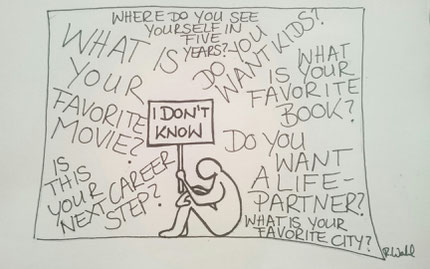 WHERE DO YOU SEE
YOURSELF IN
FIVE
YEARS?
WHAT IS
YOUR
FAVORITE
MOVIE?
DO YOU
WANT KIDS?
WHAT
IS YOUR
FAVORITE
BOOK?
I DON'T
KNOW
IS
THIS
YOUR CAREER
NEXT STEP?
DO YOU
WANT
A LIFE-
PARTNER?
WHAT IS YOUR
FAVORITE CITY?